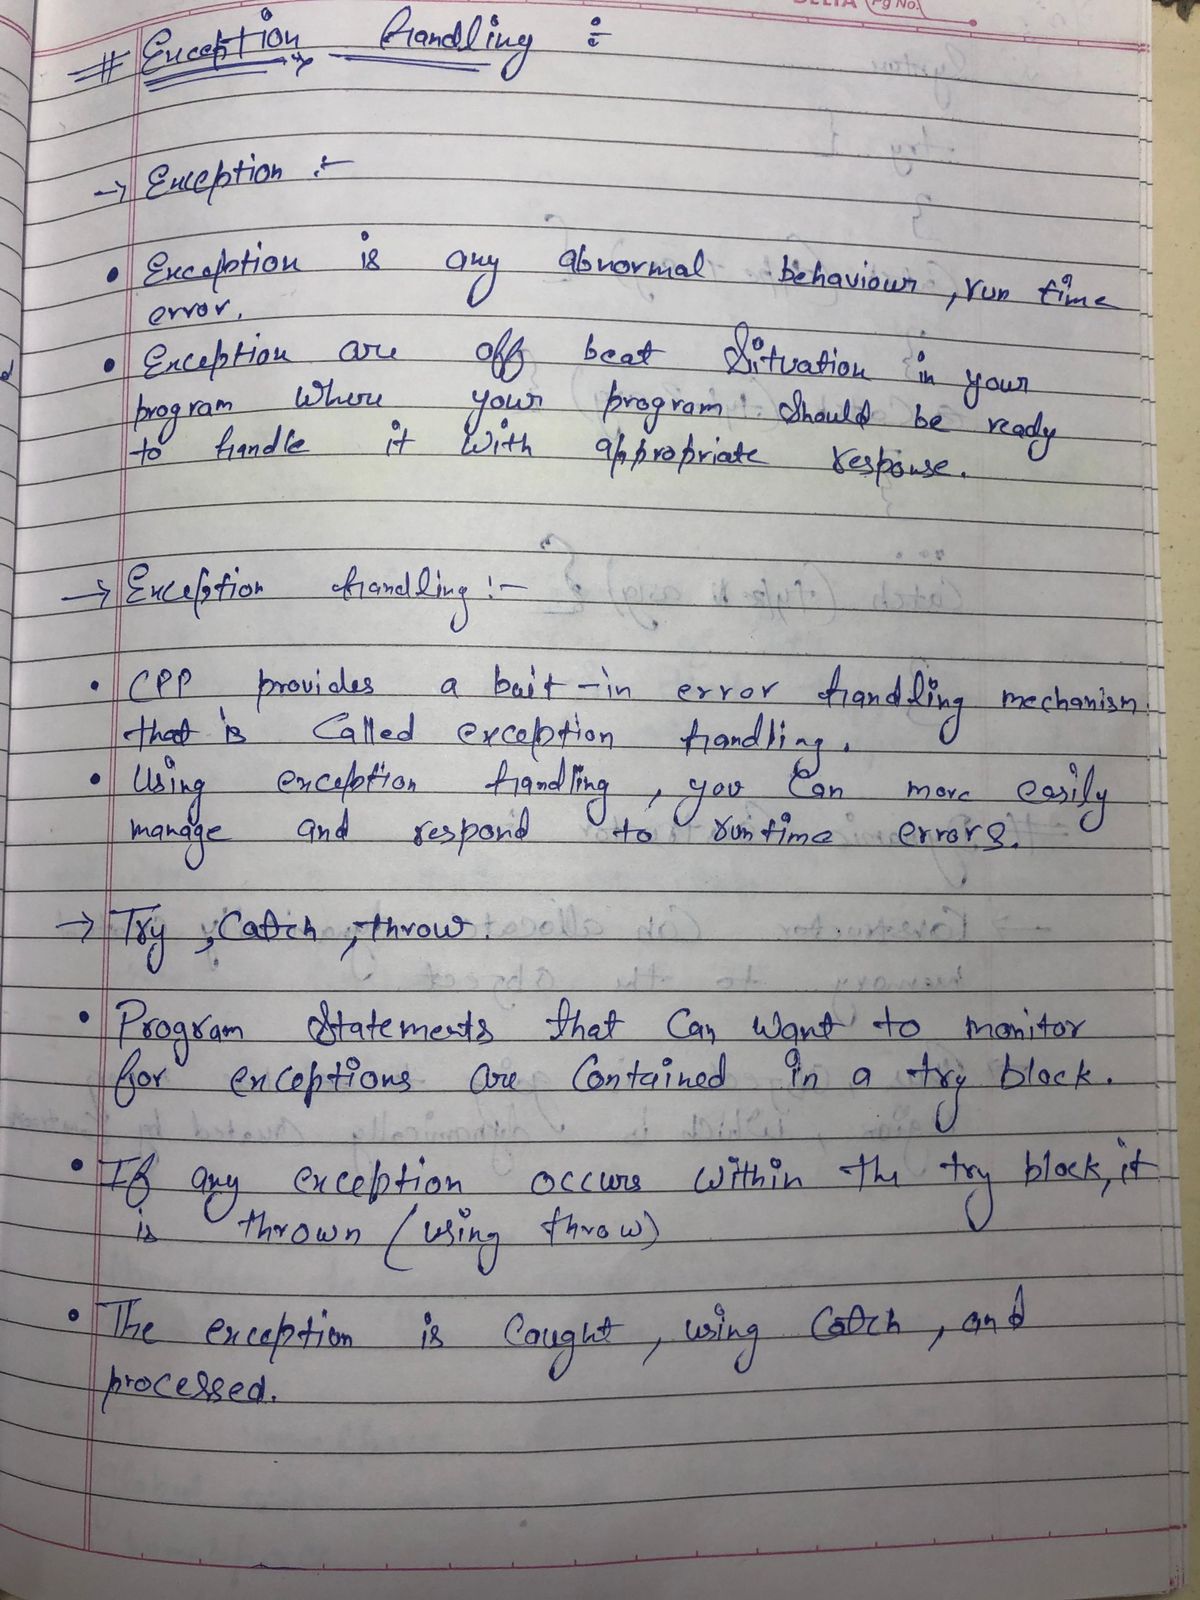 DELTA Pg No.
# Exception Handling :-
→ Exception :-
• Exception is any abnormal behaviour, run time
error.
• Exception are off beat situation in your
program where your program should be ready
to handle it with appropriate response.
→ Exception Handling :-
• CPP provides a bait-in error handling mechanism
that is called exception handling.
• Using exception handling, you can more easily
manage and respond to runtime errors.
→ Try, Catch, throw.
• Program statements that can want to monitor
for exceptions are contained in a try block.
• If any exception occurs within the try block, it
is thrown (using throw)
• The exception is caught, using catch, and
processed.